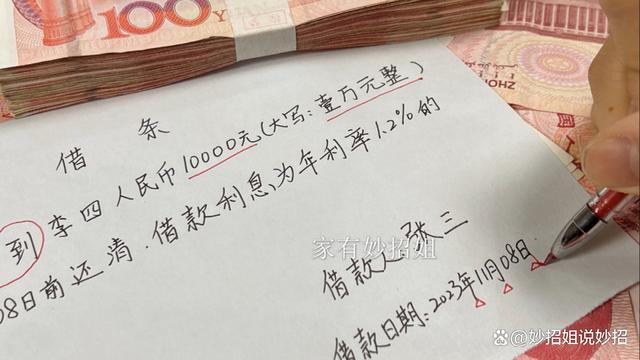 100
借条
到李四人民币10000元(大写:壹万元整)
08日前还清.借款利息为年利率1.2%的
家有妙招姐
借款人张三
借款日期:2023年11月08日
妙招姐说妙招